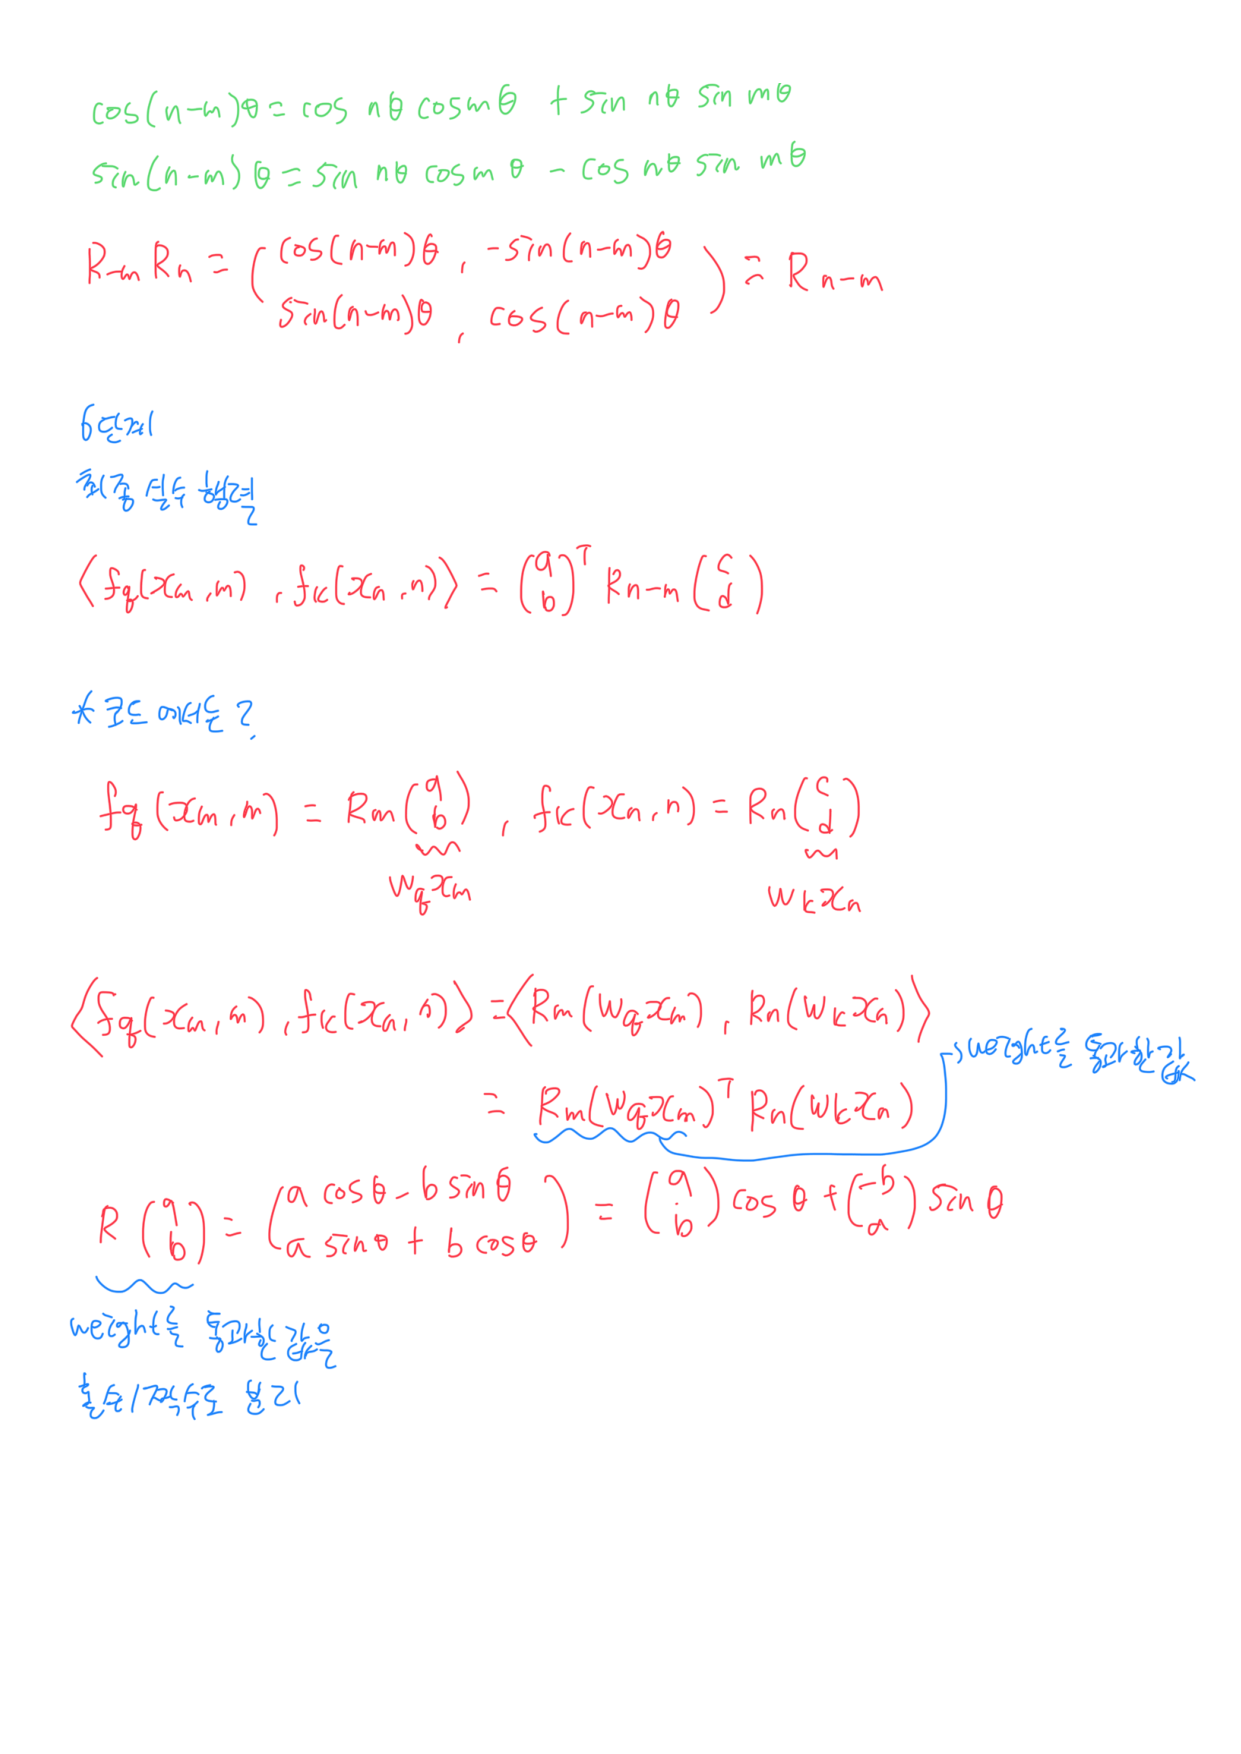 cos(n-m)θ = cos nθ cosmθ + sin nθ sin mθ
sin(n-m)θ = sin nθ cosm θ - cos nθ sin mθ
R-m Rn = ( cos(n-m)θ , -sin(n-m)θ
sin(n-m)θ , cos(n-m)θ ) = R n-m
6단계
최종 실수 행렬
⟨fq(xm,m) , fk(xn,n)⟩ = (a b)ᵀ Rn-m (c d)
* 코드에서는?
fq(xm,m) = Rm(a b) , fk(xn,n) = Rn(c d)
Wqxm Wkxn
⟨fq(xm,m), fk(xn,n)⟩ = ⟨Rm(Wqxm), Rn(Wkxn)⟩
weight를 통과한 값
= Rm(Wqxm)ᵀ Rn(Wkxn)
R (a b) = (a cosθ - b sinθ
a sinθ + b cosθ) = (a b) cos θ + (-b a) sin θ
weight를 통과한 값은
홀수/짝수로 분리